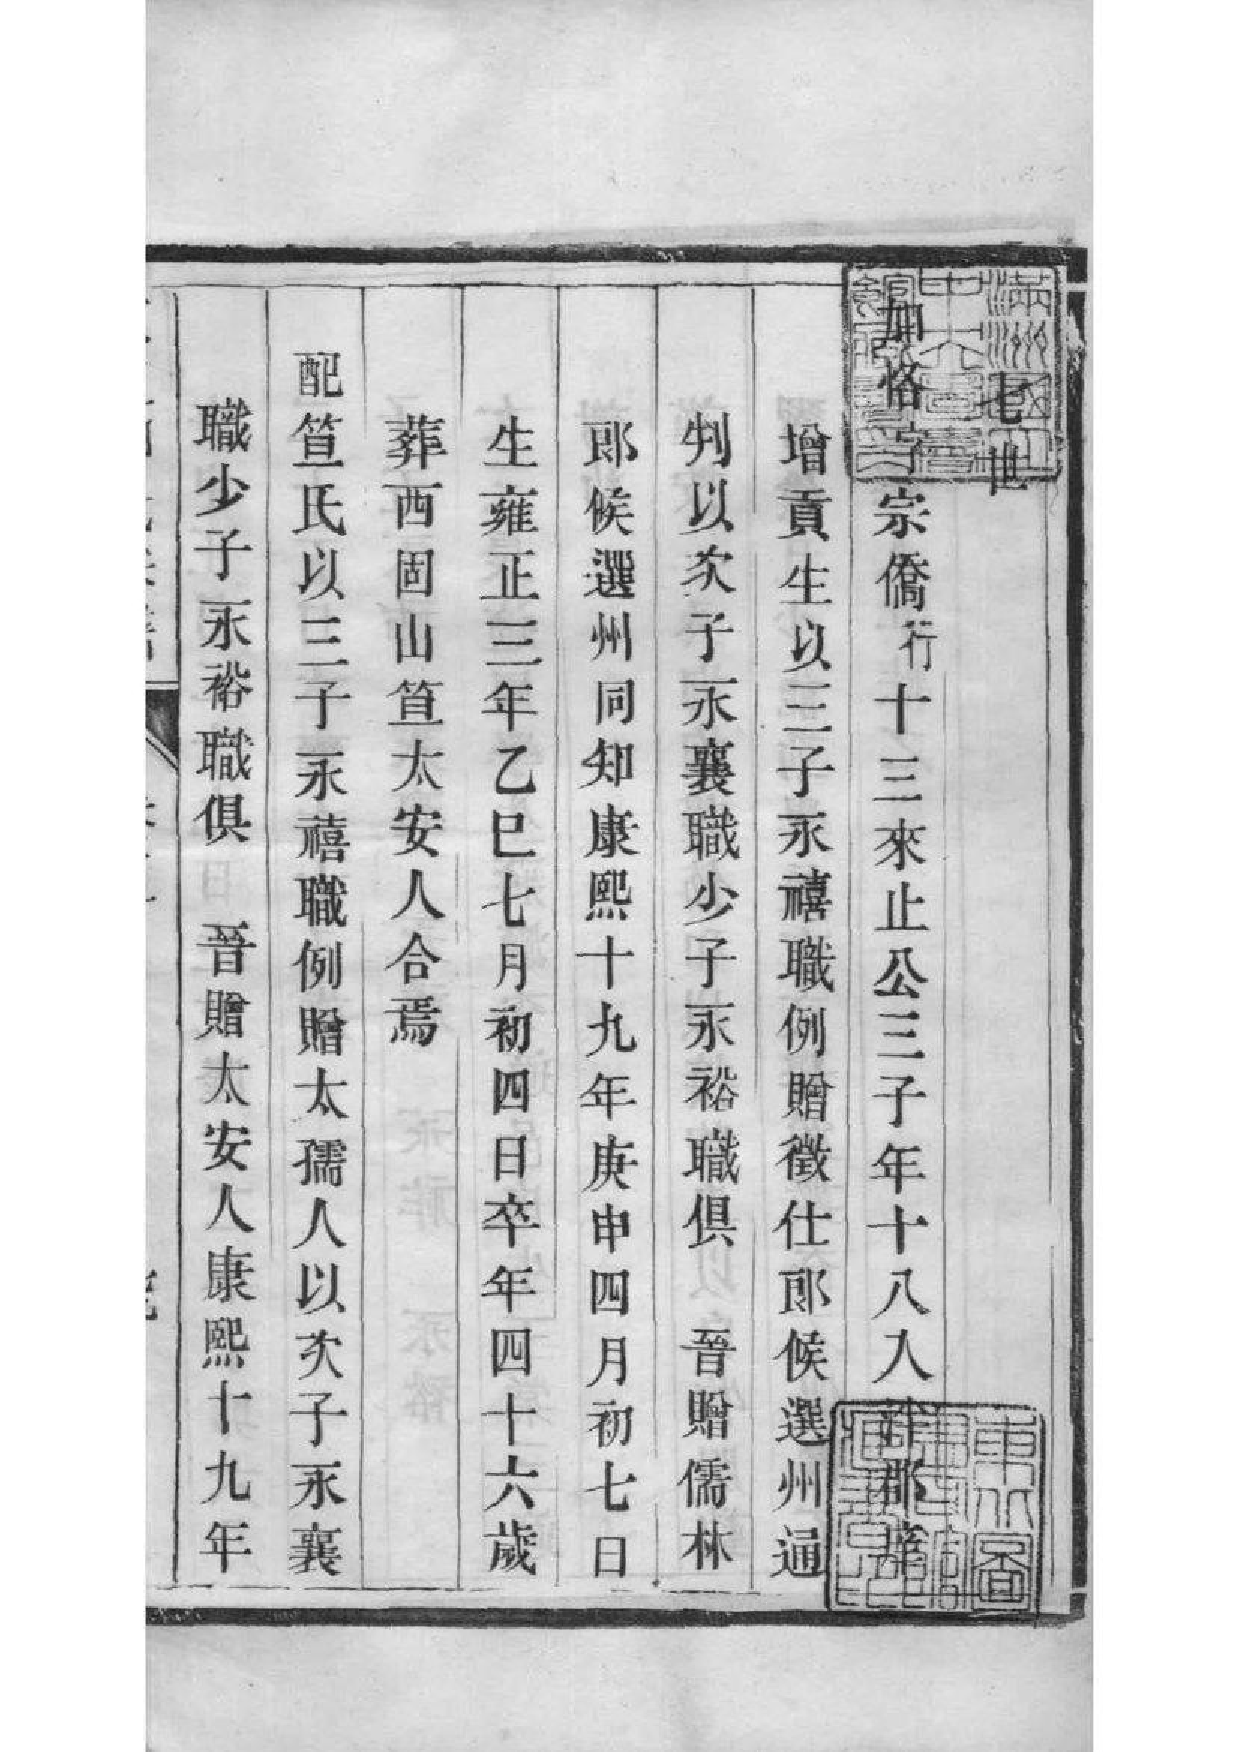 七世
加恪字宗僑行十三來止公三子年十八入許郡庠
增貢生以三子永禧職例贈徵仕郎候選州通
判以次子永襄職少子永裕職俱 晉贈儒林
郎候選州同知康熙十九年庚申四月初七日
生雍正三年乙巳七月初四日卒年四十六歲
葬西固山笪太安人合焉
配笪氏以三子永禧職例贈太孺人以次子永襄
職少子永裕職俱 晉贈太安人康熙十九年